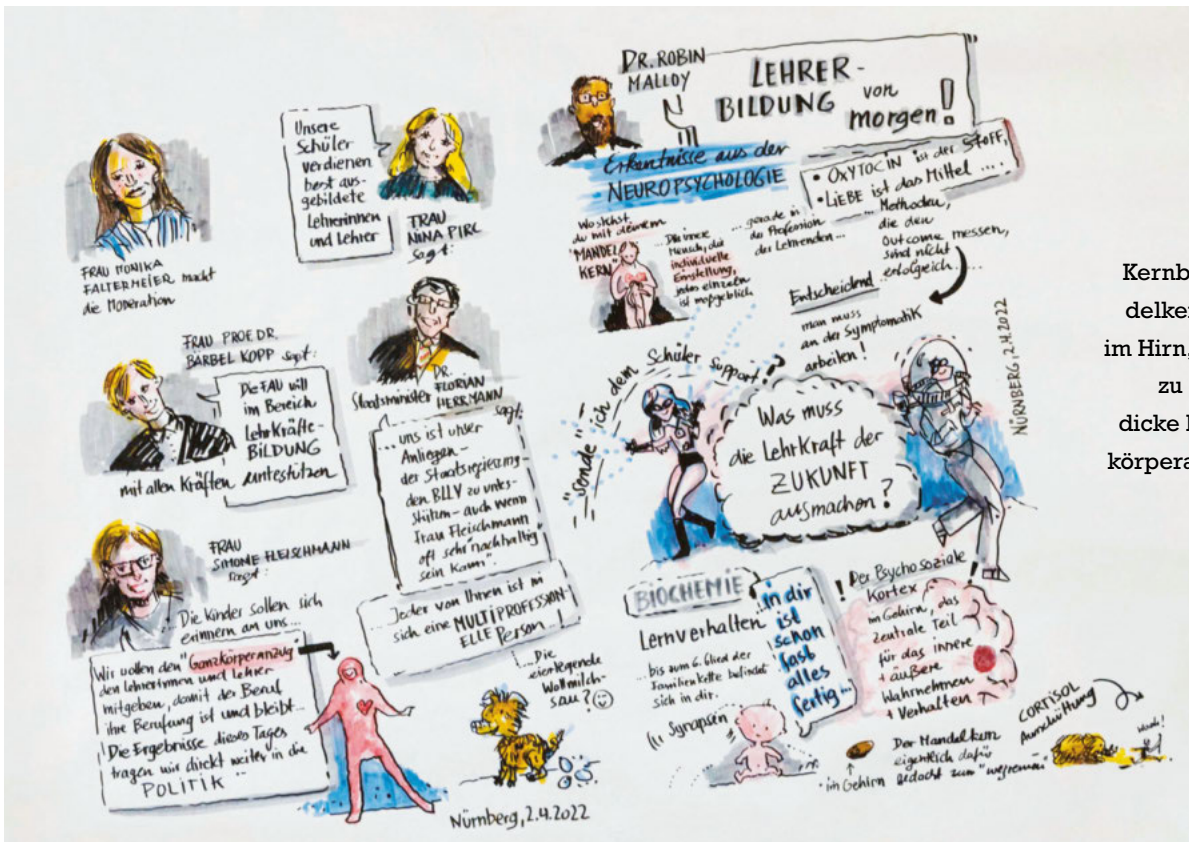 FRAU MONIKA
FALTERMEIER macht
die Moderation
Unsere
Schüler
verdienen
best aus-
gebildete
Lehrerinnen
und Lehrer
FRAU
NINA PIRC
sagt:
FRAU PROF. DR.
BÄRBEL KOPP sagt:
Die FAU will
im Bereich
Lehrkräfte-
BILDUNG
mit allen Kräften unterstützen
Staatsminister DR.
FLORIAN
HERRMANN
sagt:
... uns ist unser
Anliegen –
der Staatsregierung –
den BLLV zu unter-
stützen – auch wenn
Frau Fleischmann
oft sehr "nachhaltig
sein kann".
Jeder von Ihnen ist in
sich eine MULTIPROFESSION-
ELLE Person...!
FRAU
SIMONE FLEISCHMANN
sagt:
Die Kinder sollen sich
erinnern an uns...
Wir wollen den "Ganzkörperanzug"
den Lehrerinnen und Lehrer
mitgeben, damit der Beruf
ihre Berufung ist und bleibt...
Die Ergebnisse dieses Tages
tragen wir direkt weiter in die
POLITIK"
...Die
eierlegende
Wollmilch-
sau?
Nürnberg, 2.4.2022
DR. ROBIN
MALLOY
LEHRER-
BILDUNG von
morgen!
Erkentnisse aus der
NEUROPSYCHOLOGIE
• OXYTOCIN ist der STOFF,
• LiEBE ist das Mittel ....
Wo stehst
du mit deinem
"MANDEL
KERN"
...Der innere
Mensch, die
individuelle
Einstellung,
jedes einzelnen
ist maßgeblich
...gerade in
der Profession
der Lehrenden...
... Methoden,
die den
Outcome messen,
sind nicht
erfolgreich....
Entscheidend
man muss
an der Symptomatik
arbeiten!
NÜRNBERG, 2.4.2022
"sende" ich dem Schüler Support?
Was muss
die Lehrkraft der
ZUKUNFT
ausmachen?
BIOCHEMIE
Lernverhalten
...bis zum 6. Glied der
Familienkette befindet
sich in dir.
Synapsen
...in dir
ist
schon
fast
alles
fertig...
! Der Psychosoziale !
Kortex,
im Gehirn, das
zentrale Teil
für das innere
+ äußere
Wahrnehmen
+ Verhalten
↑
• im Gehirn
Der Mandelkern
eigentlich dafür
gedacht zum "wegrennen"
CORTISOL
Ausschüttung
Kernb
delke
im Hirn,
zu
dicke
körpera